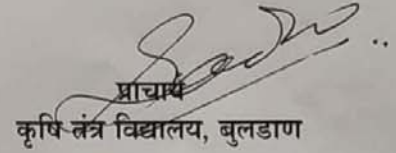 प्राचार्य
कृषि तंत्र विद्यालय, बुलडाणा